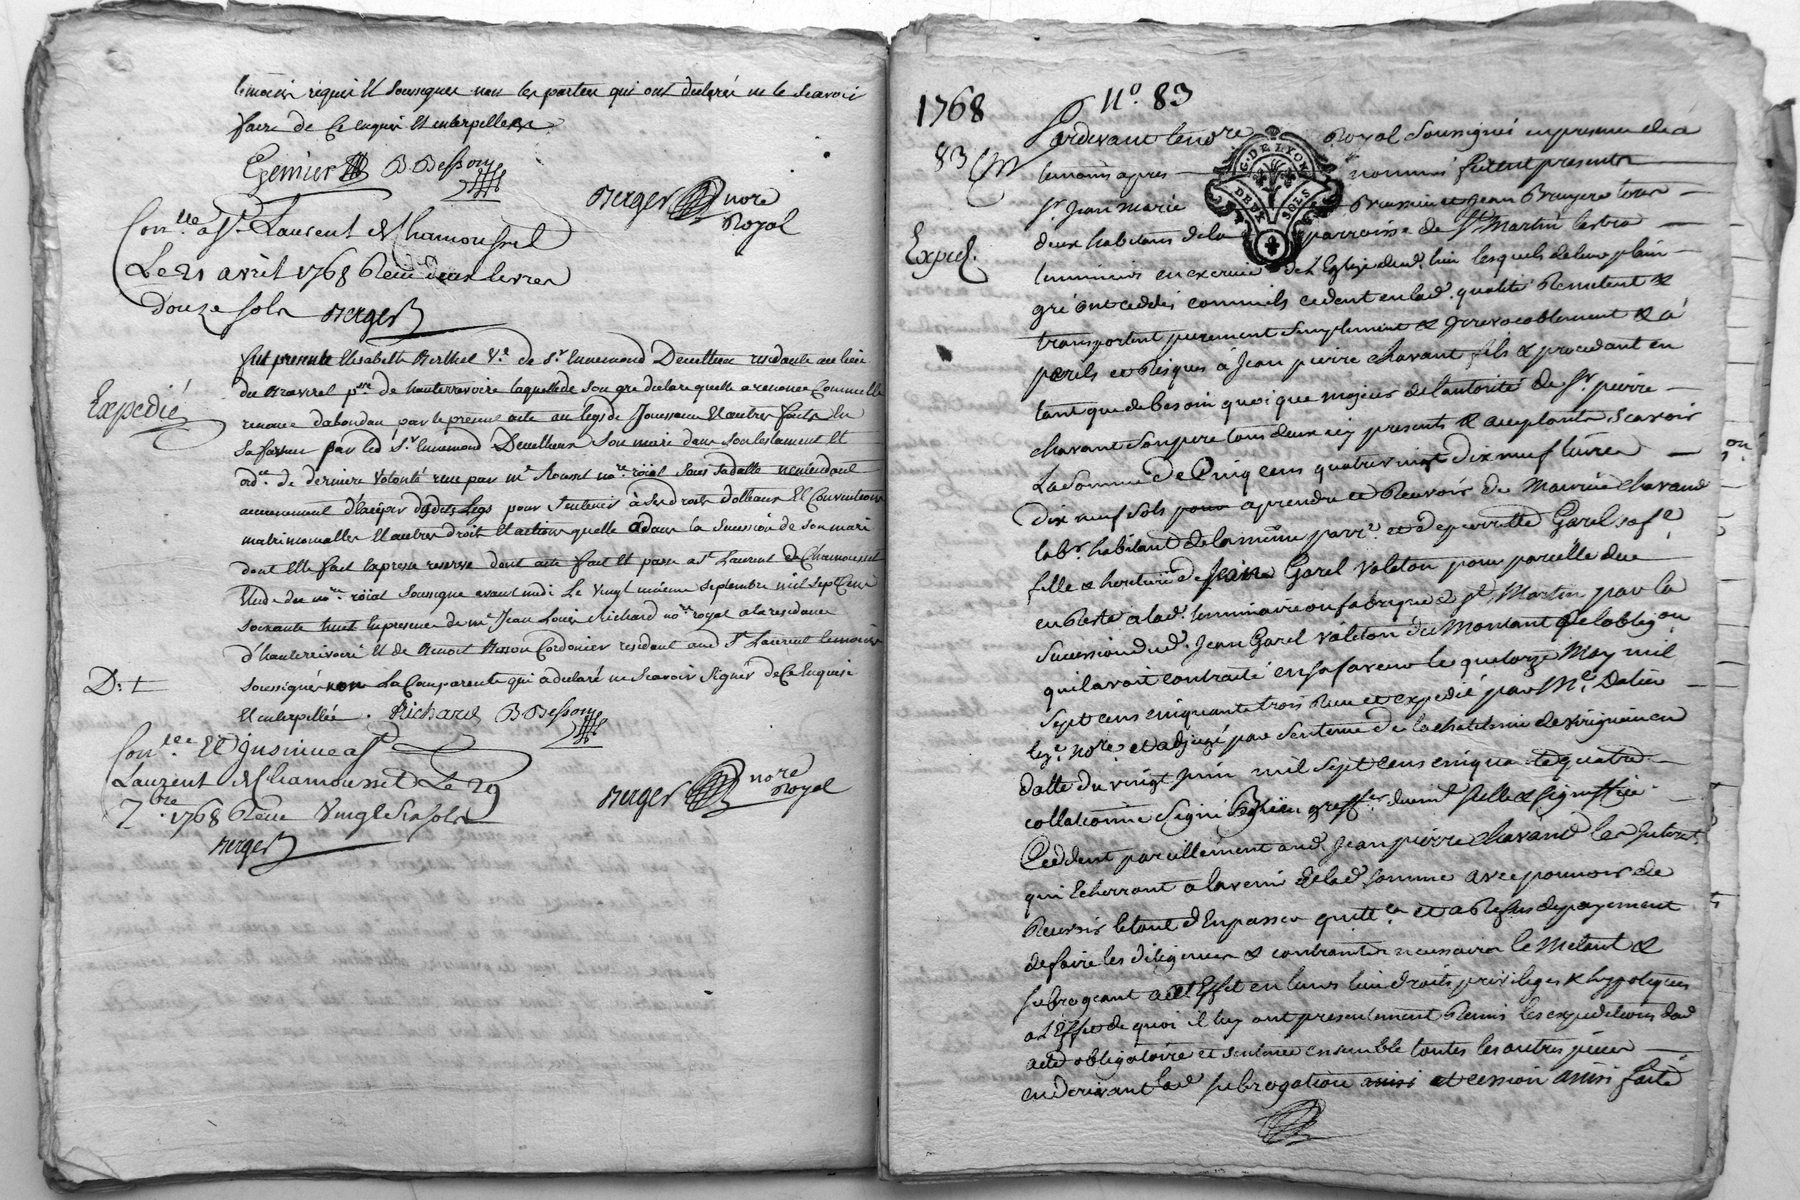 témoins requis et soussignés non les parties qui ont declaré ne le scavoir
faire de ce enquis et interpellées
Gemier B Besson
Berger nore
Royal
Con.lle a St Laurent de Chamousset
Le 21 avril 1768 Reçu deux livres
Douze sols Berger
Expedié
fut presente Elisabeth Berthet V.e de Sr Ennemond Decultieux residante au lieu
du p.sse de hauterivoire laquelle de son gre declare quelle a renoncé comme elle
renonce dabondan par le present acte au legs de Jouissance et autres faits en
sa faveur par led Sr Ennemond Decultieux son mari dans son testament et
ord.ce de derniere volonté reçu par me no.re roial sous sa datte nentendant
aucunement dudit Legs pour s'en tenir à ses droits dotaux et conventions
matrimonialles et autres droits et actions quelle a dans la succession de son mari
dont elle fait expresse reserve dont acte fait et passé a St Laurent de Chamousset
Etude du no.re roial soussigné avant midi Le vingt unieme septembre mil sept cent
soixante huit en presence de me Jean Louis Richard no.re royal a la residence
d'hauterivoire et de Benoit Besson Cordonier residant aud St Laurent temoins
D: t
soussignés non La Comparante qui a declaré ne scavoir signer de ce enquise
et interpellée. Richard B Besson
Con.lee et insinué a St
Laurent de Chamousset Le 29
7.bre 1768 Reçu Vingt six sols
Berger
Berger nore
Royal
1768 No. 83
83
Expié.
Pardevant le nore Royal soussigné en presence de
temoins apres nommés furent presents
Sr Jean Marie et Jean Bruyere tous
deux habitans de la parroisse de St Martin Lestra
luminiers en exercice de L'Eglize dud. lieu lesquels de leur plein
gré ont ceddés comme ils cedent en lad. qualité Remettent &
transportent purement simplement & Irrevocablement & à
perils et Risques à Jean pierre chavant fils & procedant en
tant que de besoin quoi que majeur de l'autorité de Sr pierre
chavant son pere tous deux icy presents & acceptants, scavoir
La somme de Cinq cens quatre vingt dix neuf livres
Dix neuf sols pour a prendre et Recevoir de Maurice chavand
lab.r habitant de la même parr.e et de pierrette Garel sa fe
fille & heritiere de Jean Garel Valeton pour pareille due
en Reste a lad. luminaire ou fabrique de St Martin par la
succession dud. Jean Garel Valeton du Montant de l'oblig.on
qu'il avoit contracté en sa faveur le quatorze May mil
sept cens cinquante trois Reçu et expedié par Me. Dalier
nore. et adjugé par sentence de la chatelenie de virigneu en
datte du vingt Juin mil sept cens cinquante quatre
collationné signé greffier duement scelle & signiffié
Ceddent pareillement aud. Jean pierre chavand les Interets
qui Echerront a lavenir de lad. somme avec pouvoir de
Recevoir le tout d'En passer quitt.ce et a Refus de payement
de faire les diligences & contraintes necessaires le Mettant &
subrogeant a cet Effet en leurs lieu droits privileges & hypoteques
a L'Effet de quoi il luy ont presentement Remis les expeditions dud
acte obligatoire et sentence ensemble toutes les autres pieces
en derivant lad subrogation et cession ainsi faite
C. DE LYON
DEUX SOLS